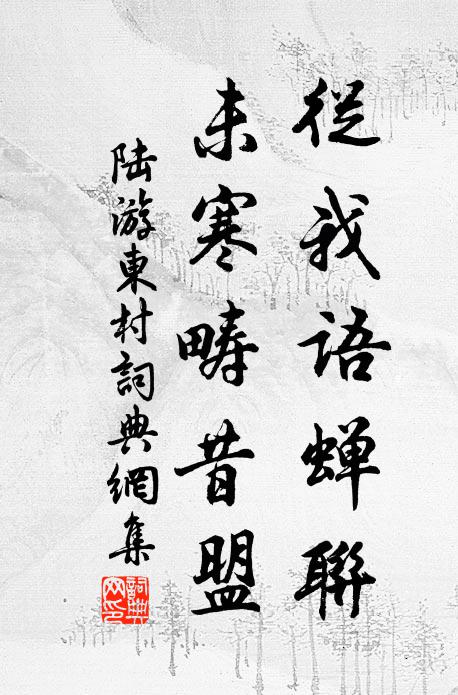 從我語蝉聯
未寒疇昔盟
陆游東村詞典網集
詞典